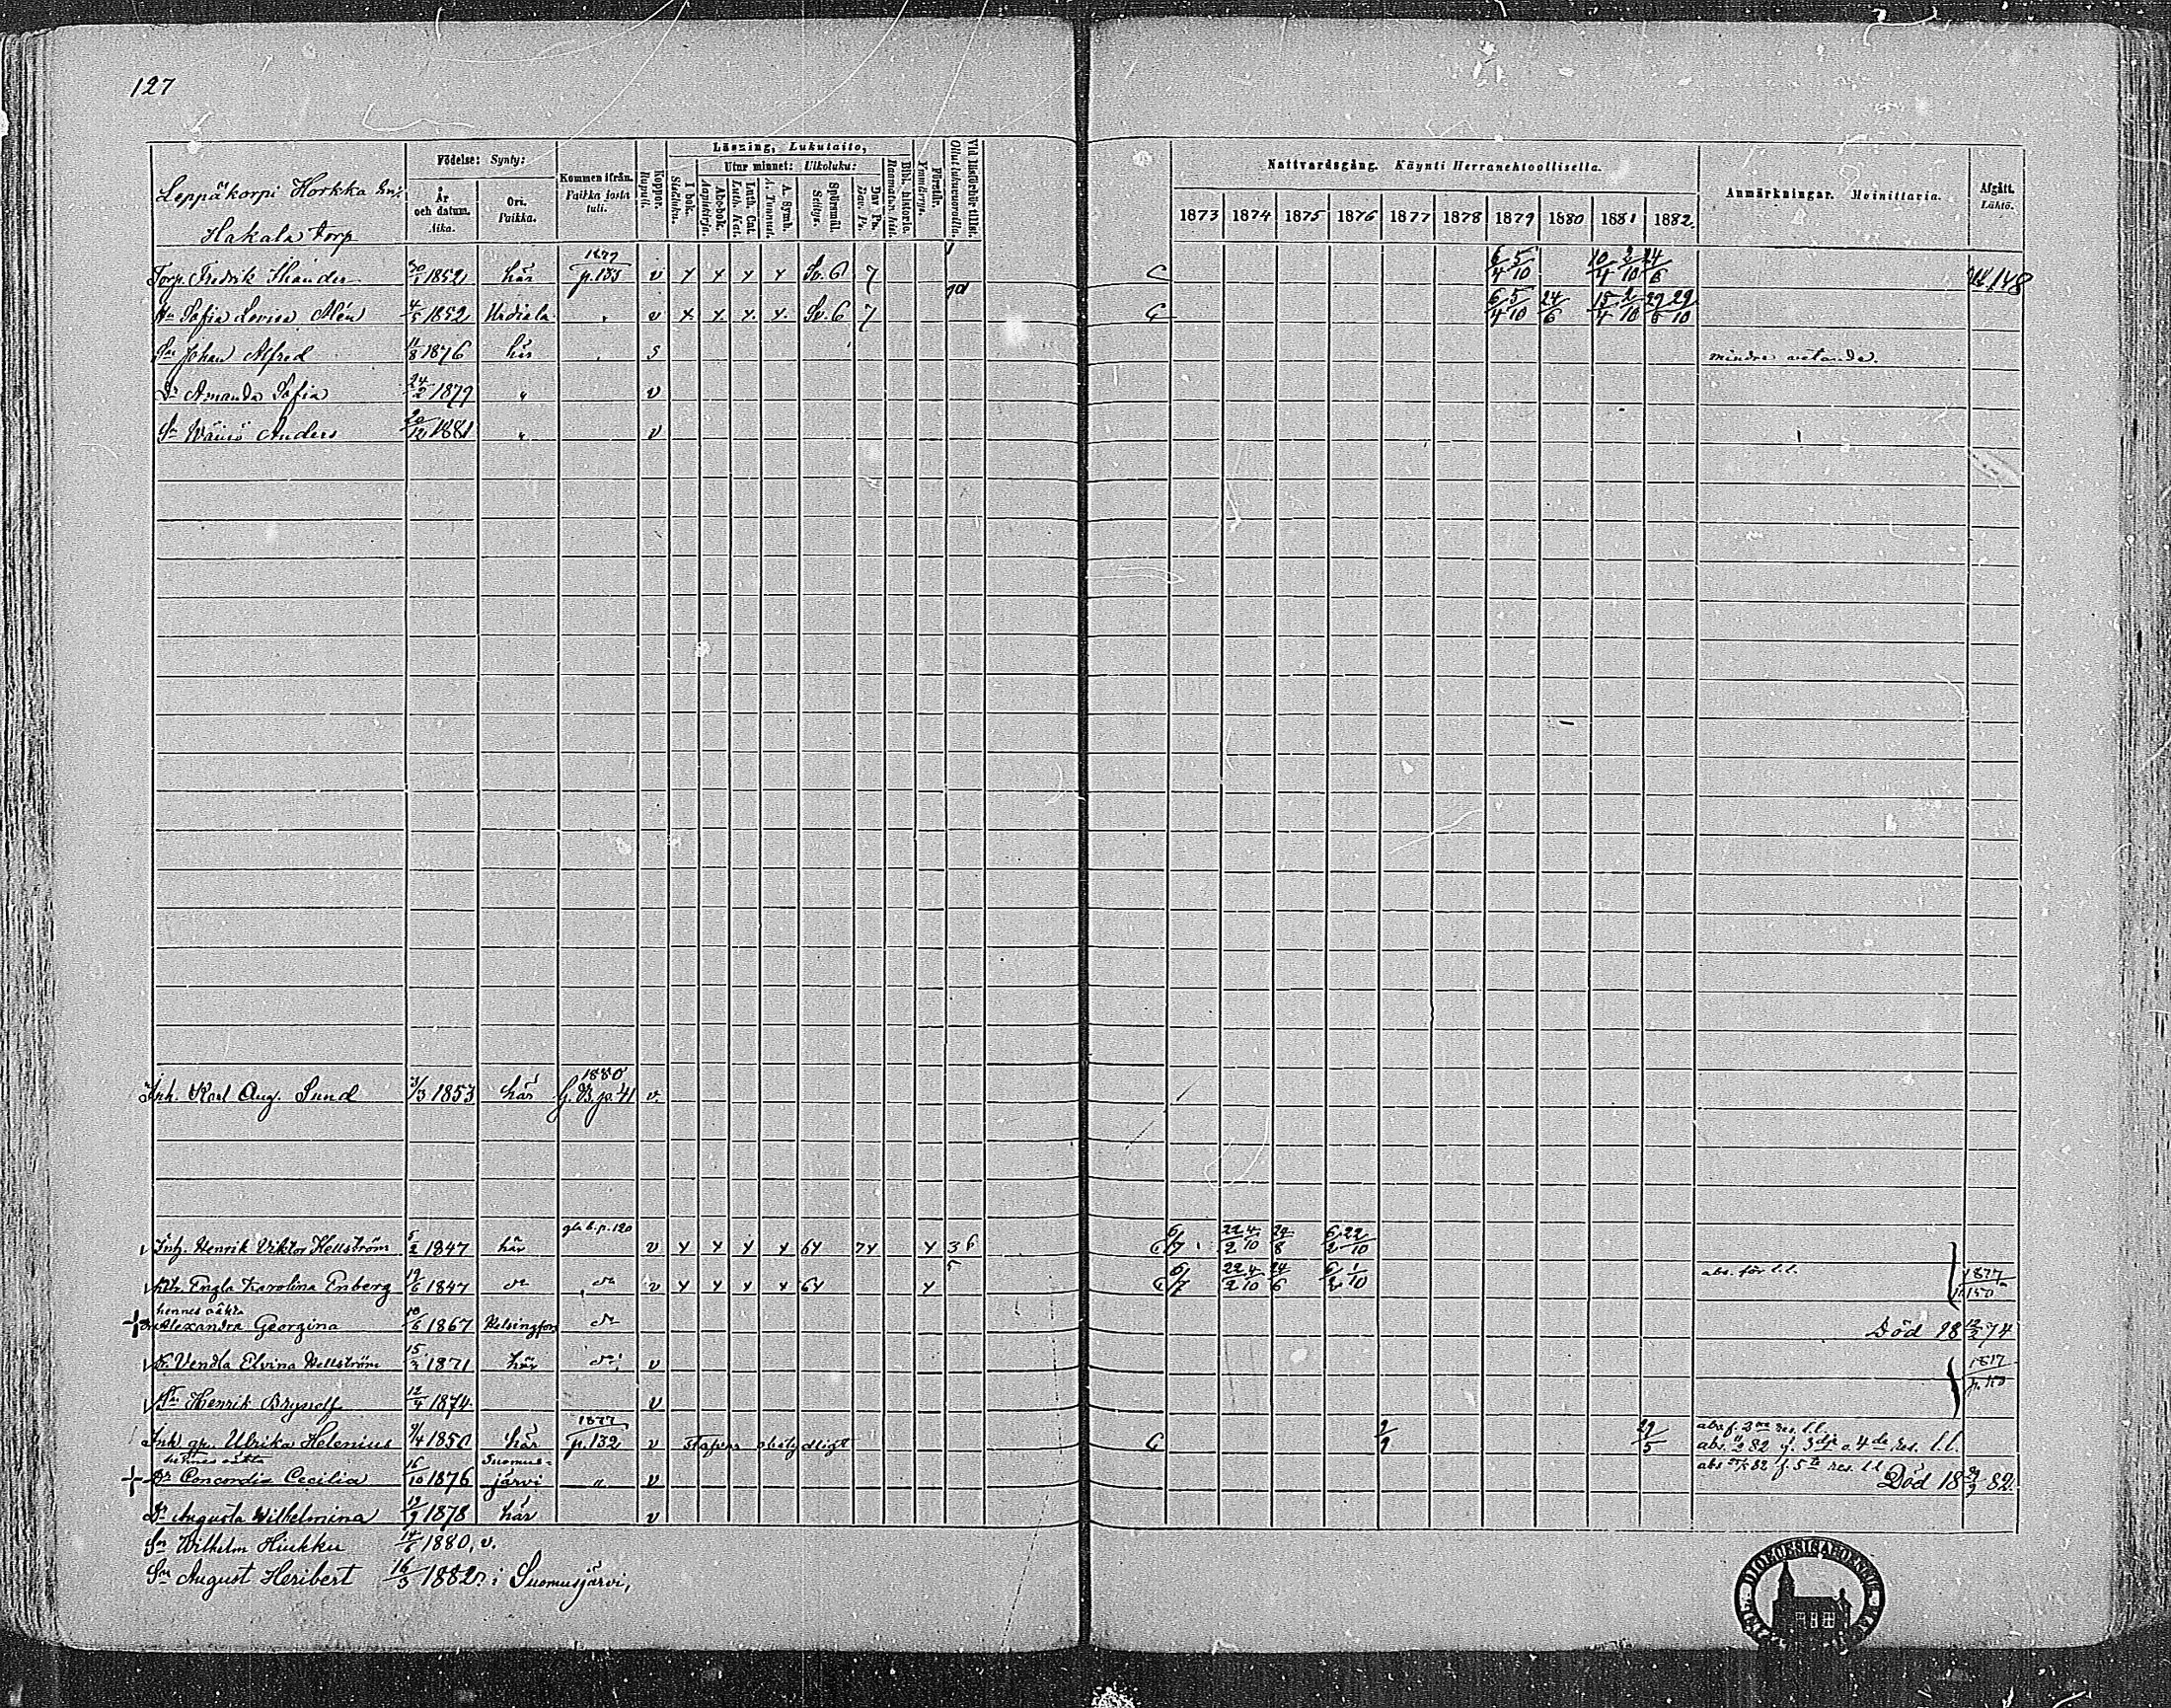 127
Leppäkorpi Horkka
Hakala torp
Födelse: Synty:
År och datum. Aika.
Ort. Paikka.
Kommen ifrån. Paikka josta tuli.
Koppor. Rupuli.
Läsning, Lukutaito,
I bok. Sisäluku.
Utur minnet: Ulkoluku:
Abc-bok. Aapiskirja.
Luth. Cat. Luth. Kat.
A. Symb. A. Tunnut.
Spörsmål. Selitys.
Dav. Ps. Dav. Ps.
Bibl. historia. Raamatun hist.
Förstår. Ymmärrys.
Vid läsförhör tillst. Ollut lukuvuorolla.
Nattvardsgång. Käynti Herranehtoollisella.
1873 1874 1875 1876 1877 1878 1879 1880 1881 1882
Anmärkningar. Muinittaria.
Afgått. Lähtö.
Torp. Fredrik Skander 1852 här 1877 p. 133 v Sv. 6 7 6/4 5/10 10/4 2/10 24/6 148
Hu Sofia Lovisa Alén 4/5 1852 Urdiala v Sv. 6 7 6/4 5/10 24/6 15/4 2/10 29/10
Sn Johan Alfred 11/8 1876 här s mindre vetande.
Dr Amanda Sofia 24/2 1879 " v
Sn Wäinö Anders 20/12 1881 " v
Inh. Karl Aug. Sund 3/3 1853 här 1880 G. B. p. 41 v.
Inh. Henrik Viktor Hellström 5/2 1847 här gla b. p. 120 v 6/7 22/2 4/10 6/2 22/10
Engla Karolina Enberg 19/6 1847 do do v 6/7 22/2 4/10 24/6 1/10 abs. för l.l. 1877 p. 150
hennes oäkta
Alexandra Georgina 10/6 1867 Helsingfors do Död 18 12/2 74
Dr Vendla Elvina Hellström 15/3 1871 här do v
Sn Henrik Brynolf 12/4 1874 v
Inh. qp. Ulrika Helenius 9/4 1850 här 1877 p. 132 v stapvar obetydligt 29/5 abs. f. 2 res. l.l.
abs. 82 f. 3dje o. 4de res. l.l.
hennes oäkta
Dr Concordia Cecilia 16/10 1876 Suomusjärvi " v abs. 82 f. 5te res. l.l. Död 18 82.
Dr Augusta Wilhelmina 19/9 1878 här v
Sn Wilhelm Hinkku 14/6 1880, v.
Sn August Heribert 16/3 1882 i Suomusjärvi,
DIOECESIS ABOENSIS